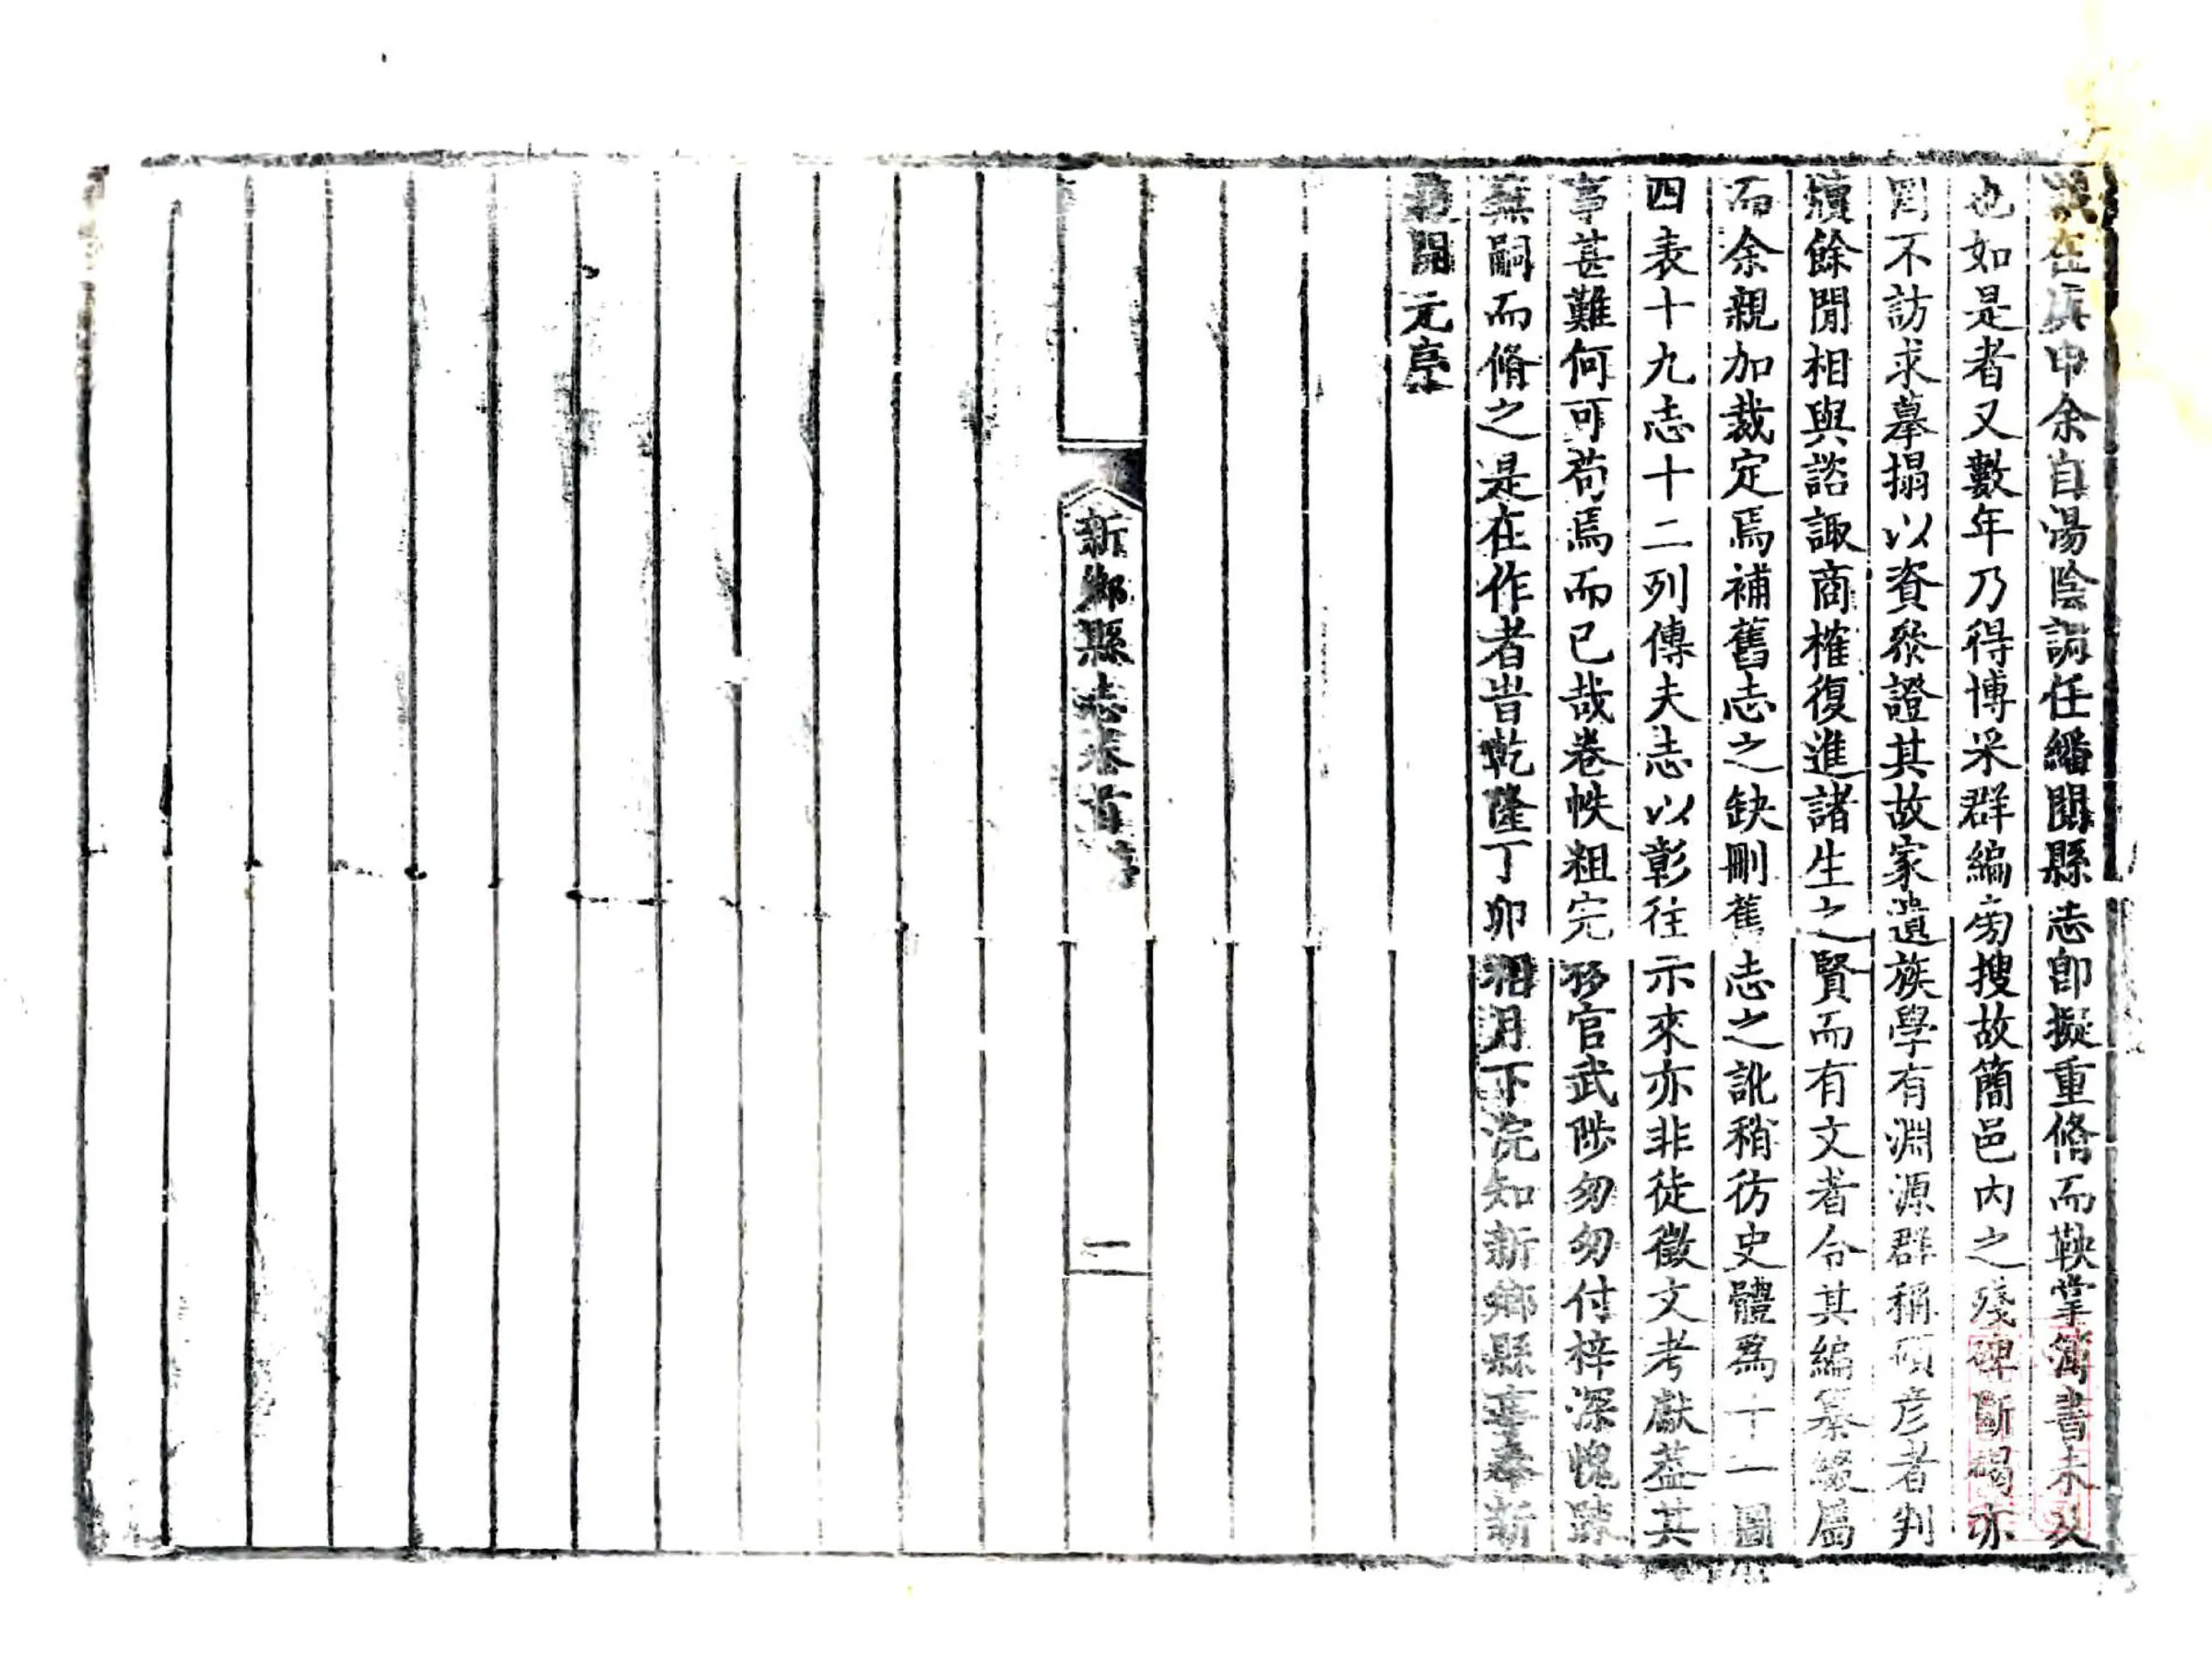 在庚申余自湯陰調任繙閱縣志卽擬重脩而鞅掌簿書未及
也如是者又數年乃得博采群編旁搜故簡邑内之殘碑斷碣亦
罔不訪求摹搨以資參證其故家遺族學有淵源群稱碩彥者判
牘餘閒相與諮諏商榷復進諸生之賢而有文者令其編纂綴屬
而余親加裁定焉補舊志之缺刪舊志之訛稍彷史體爲十一圖
四表十九志十二列傳夫志以彰往示來亦非徒徵文考獻葢其
事甚難何可苟焉而已哉卷帙粗完移官武陟匆匆付梓深愧疎
蕪嗣而脩之是在作者旹乾隆丁卯相月下浣知新鄉縣事奉新
趙開元序
新鄉縣志卷首序
二